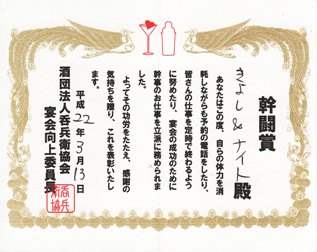 幹闘賞
きよし&ナイト殿
あなたはこの度、自らの体力を消
耗しながらも予約の電話をしたり、
皆さんの仕事を定時で終わるよう
に努めたり、宴会の成功のために
幹事のお仕事を立派に務められま
した。
よってその功労をたたえ、感謝の
気持ちを贈り、これを表彰いたし
ます。
平成22年3月13日
酒団法人呑兵衛協会
宴会向上委員長